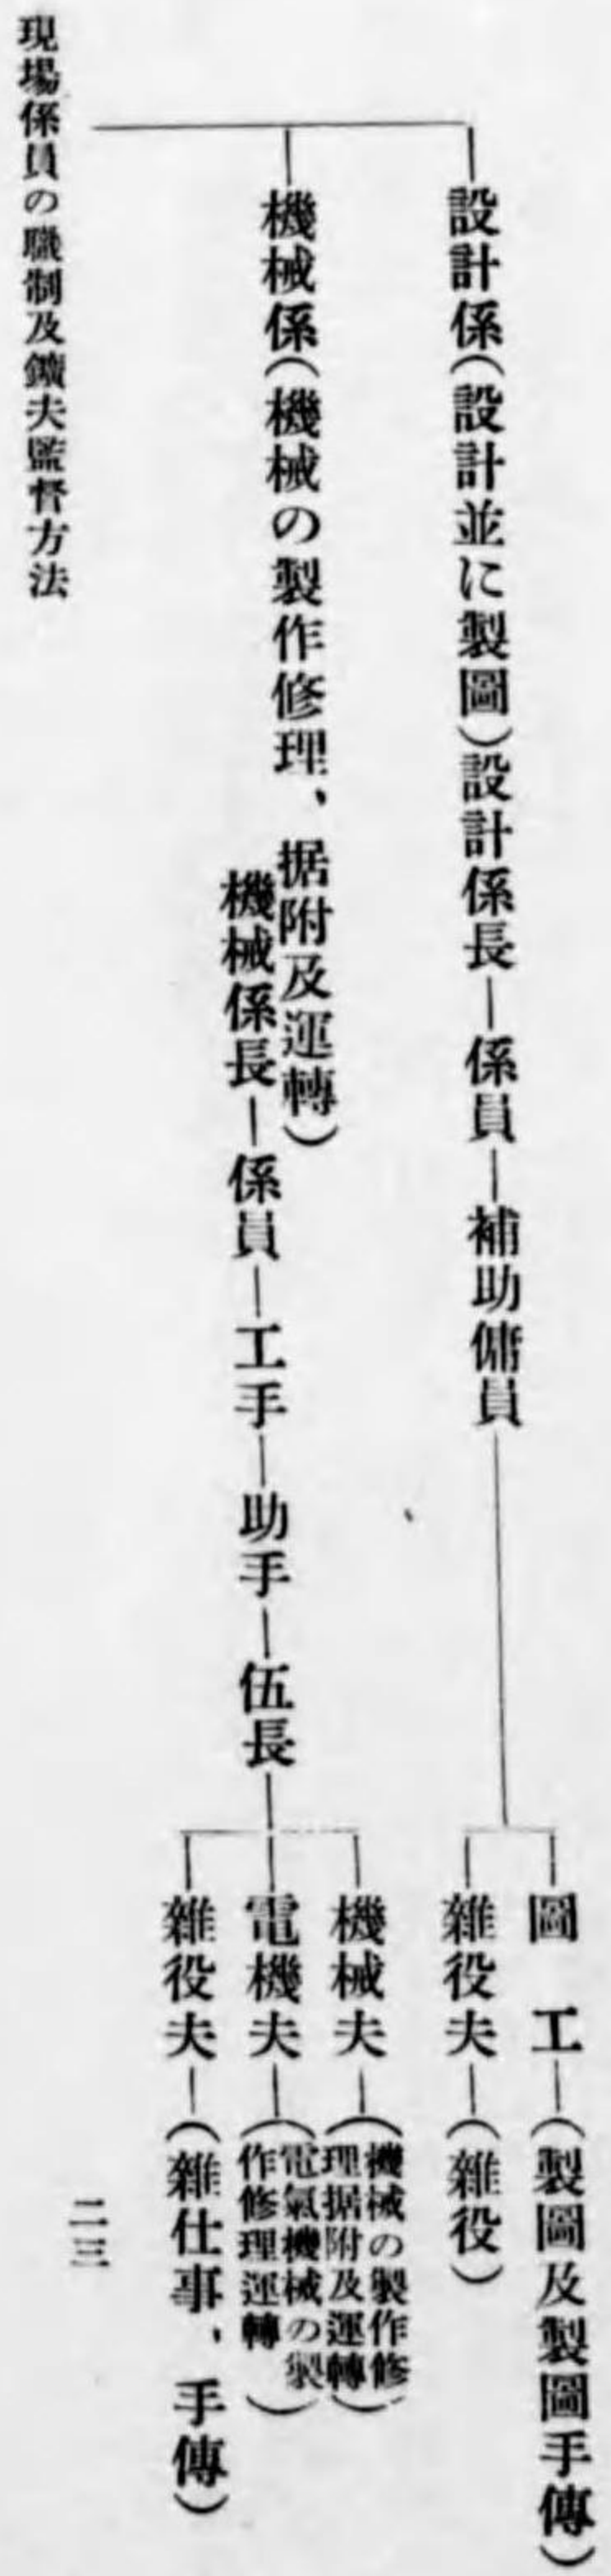 設計係(設計並に製圖)設計係長—係員—補助傭員
圖　工—(製圖及製圖手傳)
雜役夫—(雜役)
機械係(機械の製作修理、据附及運轉)
機械係長—係員—工手—助手—伍長
機械夫—(機械の製作修
理据附及運轉)
電機夫—(電氣機械の製
作修理運轉)
雜役夫—(雜仕事、手傳)
現場係員の職制及鑛夫監督方法
二三